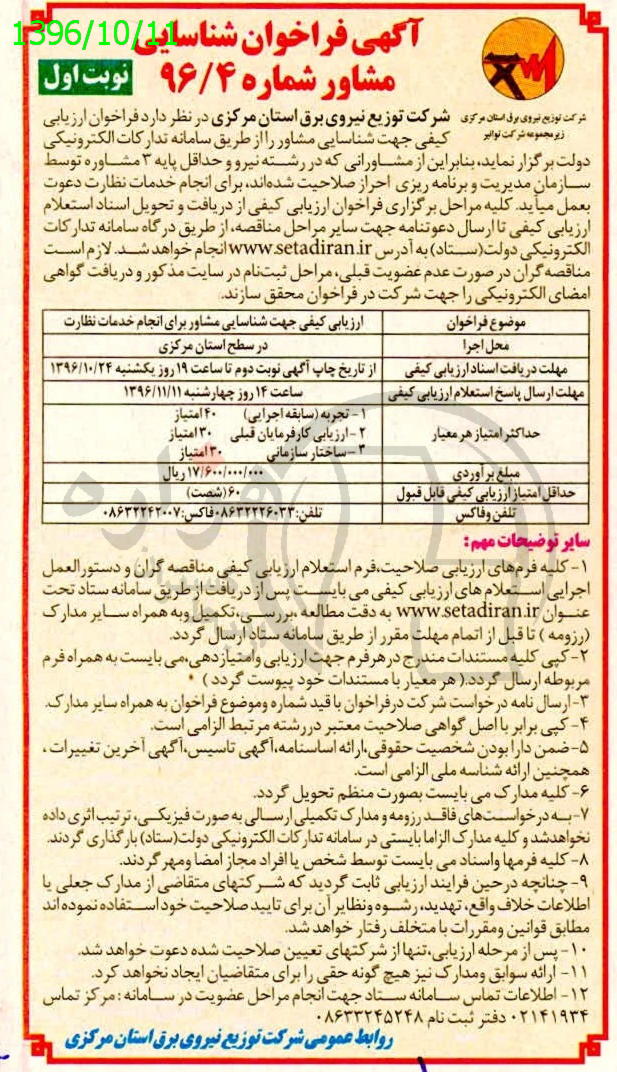 1396/10/11
آگهی فراخوان شناسایی
مشاور شماره ۹۶/۴
نوبت اول
شرکت توزیع نیروی برق استان مرکزی
زیرمجموعه شرکت توانیر
شرکت توزیع نیروی برق استان مرکزی در نظر دارد فراخوان ارزیابی
کیفی جهت شناسایی مشاور را از طریق سامانه تدارکات الکترونیکی
دولت برگزار نماید، بنابراین از مشاورانی که در رشته نیرو و حداقل پایه ۳ مشاوره توسط
سازمان مدیریت و برنامه ریزی احراز صلاحیت شده‌اند، برای انجام خدمات نظارت دعوت
بعمل میآید. کلیه مراحل برگزاری فراخوان ارزیابی کیفی از دریافت و تحویل اسناد استعلام
ارزیابی کیفی تا ارسال دعوتنامه جهت سایر مراحل مناقصه، از طریق درگاه سامانه تدارکات
الکترونیکی دولت(ستاد) به آدرس www.setadiran.ir انجام خواهد شد. لازم است
مناقصه گران در صورت عدم عضویت قبلی، مراحل ثبت‌نام در سایت مذکور و دریافت گواهی
امضای الکترونیکی را جهت شرکت در فراخوان محقق سازند.
موضوع فراخوان ارزیابی کیفی جهت شناسایی مشاور برای انجام خدمات نظارت
محل اجرا در سطح استان مرکزی
مهلت دریافت اسناد ارزیابی کیفی از تاریخ چاپ آگهی نوبت دوم تا ساعت ۱۹ روز یکشنبه ۱۳۹۶/۱۰/۲۴
مهلت ارسال پاسخ استعلام ارزیابی کیفی ساعت ۱۴ روز چهارشنبه ۱۳۹۶/۱۱/۱۱
حداکثر امتیاز هر معیار
۱- تجربه (سابقه اجرایی) ۴۰ امتیاز
۲- ارزیابی کارفرمایان قبلی ۳۰ امتیاز
۳- ساختار سازمانی ۳۰ امتیاز
مبلغ برآوردی ۱۷/۶۰۰/۰۰۰/۰۰۰ ریال
حداقل امتیاز ارزیابی کیفی قابل قبول ۶۰ (شصت)
تلفن و فاکس تلفن: ۰۸۶۳۲۲۲۶۰۳۳ فاکس: ۰۸۶۳۲۲۴۲۰۰۷
سایر توضیحات مهم:
۱- کلیه فرم‌های ارزیابی صلاحیت، فرم استعلام ارزیابی کیفی مناقصه گران و دستورالعمل
اجرایی استعلام های ارزیابی کیفی می بایست پس از دریافت از طریق سامانه ستاد تحت
عنوان www.setadiran.ir به دقت مطالعه ،بررسی،تکمیل و به همراه سایر مدارک
(رزومه ) تا قبل از اتمام مهلت مقرر از طریق سامانه ستاد ارسال گردد.
۲- کپی کلیه مستندات مندرج در هر فرم جهت ارزیابی و امتیازدهی،می بایست به همراه فرم
مربوطه ارسال گردد.( هر معیار با مستندات خود پیوست گردد )
۳- ارسال نامه درخواست شرکت در فراخوان با قید شماره و موضوع فراخوان به همراه سایر مدارک.
۴- کپی برابر با اصل گواهی صلاحیت معتبر در رشته مرتبط الزامی است.
۵- ضمن دارا بودن شخصیت حقوقی،ارائه اساسنامه،آگهی تاسیس،آگهی آخرین تغییرات ،
همچنین ارائه شناسه ملی الزامی است.
۶- کلیه مدارک می بایست بصورت منظم تحویل گردد.
۷- به درخواست‌های فاقد رزومه و مدارک تکمیلی ارسالی به صورت فیزیکی، ترتیب اثری داده
نخواهدشد و کلیه مدارک الزاما بایستی در سامانه تدارکات الکترونیکی دولت(ستاد) بارگذاری گردند.
۸- کلیه فرمها و اسناد می بایست توسط شخص یا افراد مجاز امضا و مهر گردند.
۹- چنانچه در حین فرایند ارزیابی ثابت گردید که شرکتهای متقاضی از مدارک جعلی یا
اطلاعات خلاف واقع، تهدید، رشوه و نظایر آن برای تایید صلاحیت خود استفاده نموده اند
مطابق قوانین و مقررات با متخلف رفتار خواهد شد.
۱۰- پس از مرحله ارزیابی،تنها از شرکتهای تعیین صلاحیت شده دعوت خواهد شد.
۱۱- ارائه سوابق و مدارک نیز هیچ گونه حقی را برای متقاضیان ایجاد نخواهد کرد.
۱۲- اطلاعات تماس سامانه ستاد جهت انجام مراحل عضویت در سامانه : مرکز تماس
۰۲۱۴۱۹۳۴ دفتر ثبت نام ۰۸۶۳۳۲۴۵۲۴۸
روابط عمومی شرکت توزیع نیروی برق استان مرکزی